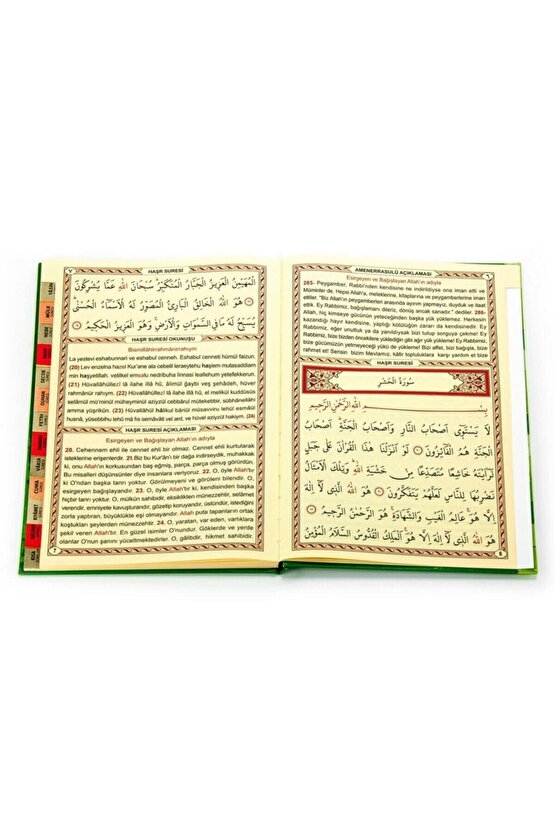 AMENERRASULÜ AÇIKLAMASI
٦
Esirgeyen ve Bağışlayan Allah'ın adıyla
285- Peygamber, Rabbi'nden kendisine ne indirildiyse ona iman etti ve
Müminler de. Hepsi Allah'a, meleklerine, kitaplarına ve peygamberlerine iman
etti. Ey Rabbimiz, bağışlamanı dileriz, dönüş ancak sanadır." dediler. 286-
Allah, hiç kimseye gücünün yeteceğinden başka yük yüklemez. Herkesin
kazandığı hayır kendisine, yaptığı kötülüğün zararı da kendisinedir. Ey
Rabbimiz, eğer unuttuk ya da yanıldıysak bizi tutup sorguya çekme! Ey
Rabbimiz, bize bizden öncekilere yüklediğin gibi ağır yük yükleme! Ey Rabbimiz,
bize gücümüzün yetmeyeceği yükü de yükleme! Bizi affet, bizi bağışla, bize
rahmet et! Sensin bizim Mevlamız, kâfir topluluklara karşı yardım et bize
HAŞR SURESİ
سُورَةُ الْحَشْرِ
بِسْمِ اللّٰهِ الرَّحْمٰنِ الرَّحِيمِ
لَا يَسْتَوِى اَصْحَابُ النَّارِ وَاَصْحَابُ الْجَنَّةِ اَصْحَابُ
الْجَنَّةِ هُمُ الْفَائِزُونَ لَوْ اَنْزَلْنَا هٰذَا الْقُرْاٰنَ عَلٰى جَبَلٍ
لَرَاَيْتَهُ خَاشِعًا مُتَصَدِّعًا مِنْ خَشْيَةِ اللّٰهِ وَتِلْكَ الْاَمْثَالُ
نَضْرِبُهَا لِلنَّاسِ لَعَلَّهُمْ يَتَفَكَّرُونَ هُوَ اللّٰهُ الَّذِى لَا اِلٰهَ
اِلَّا هُوَ عَالِمُ الْغَيْبِ وَالشَّهَادَةِ هُوَ الرَّحْمٰنُ الرَّحِيمُ
هُوَ اللّٰهُ الَّذِى لَا اِلٰهَ اِلَّا هُوَ اَلْمَلِكُ الْقُدُّوسُ السَّلَامُ الْمُؤْمِنُ
6
٧
HAŞR SURESİ
الْمُهَيْمِنُ الْعَزِيزُ الْجَبَّارُ الْمُتَكَبِّرُ سُبْحَانَ اللّٰهِ عَمَّا يُشْرِكُونَ
هُوَ اللّٰهُ الْخَالِقُ الْبَارِئُ الْمُصَوِّرُ لَهُ الْاَسْمَاءُ الْحُسْنٰى
يُسَبِّحُ لَهُ مَا فِى السَّمٰوَاتِ وَالْاَرْضِ وَهُوَ الْعَزِيزُ الْحَكِيمُ
HAŞR SURESİ OKUNUŞU
Bismillâhirrahmânirrahıym
La yestevi eshabunnari ve eshabul cenneti. Eshabul cenneti hümül faizun.
(20) Lev enzelna hazel Kur'ane ala cebelil leraeytehu haşiem mutasaddiam
min haşyetillah. vetilkel emsalu nedribuha linnasi leallehum yetefekkerun.
(21) Hüvallâhüllezî lâ ilahe illâ hû, âlimül ğaybi veş şehâdeh, hüver
rahmânür rahıym. (22) Hüvallâhüllezî lâ ilahe illâ hû, el melikül kuddûsüs
selâmül mü'minül müheyminül azizül cebbârul mütekebbir, sübhânellâhi
amma yüşrikûn. (23) Hüvallâhül hâlikul bâriül müsavviru lehül esmâül
husnâ, yüsebbihu lehû mâ fis semâvâti vel ard, ve hüvel azizyül hakiym. (24)
HAŞR SURESİ AÇIKLAMASI
Esirgeyen ve Bağışlayan Allah'ın adıyla
20. Cehennem ehli ile cennet ehli bir olmaz. Cennet ehli kurtularak
isteklerine erişenlerdir. 21. Biz bu Kur'ân'ı bir dağa indirseydik, muhakkak
ki, onu Allah'ın korkusundan baş eğmiş, parça, parça olmuş görürdün,
Bu misalleri düşünsünler diye insanlara veriyoruz. 22. O, öyle Allah'tır
ki O'ndan başka tanrı yoktur. Görülmeyeni ve görüleni bilendir. O,
esirgeyen bağışlayandır. 23. O, öyle Allah'tır ki, kendisinden başka
hiçbir tanrı yoktur. O, mülkün sahibidir, eksiklikten münezzehtir, selâmet
verendir, emniyete kavuşturandır, gözetip koruyandır, üstündür, istediğini
zorla yaptıran, büyüklükte eşi olmayandır. Allah puta tapanların ortak
koştukları şeylerden münezzehtir. 24. O, yaratan, var eden, varlıklara
şekil veren Allah'tır. En güzel isimler O'nundur. Göklerde ve yerde
olanlar O'nun şanını yüceltmektedirler. O, gâlibdir, hikmet sahibidir.
7
YASİN
MÜLK
NEBE
SECDE
DUHAN
FETİH
VAKIA
CUMA
KIYAMET
KISA